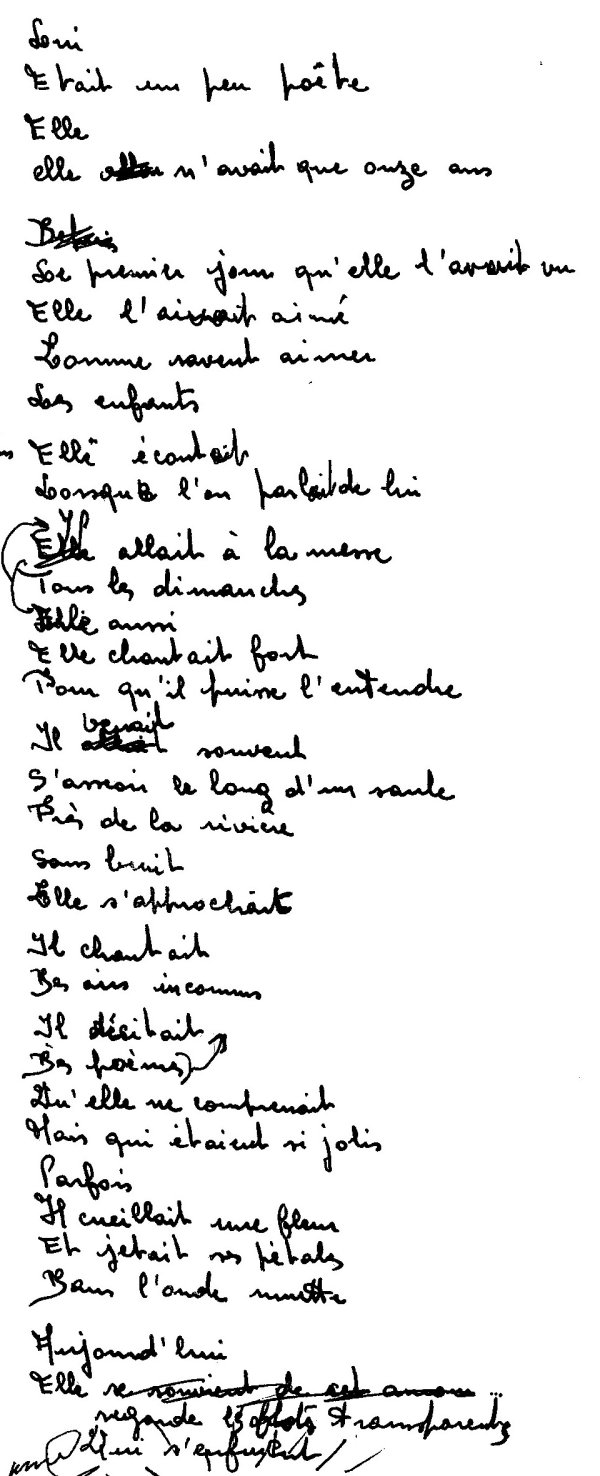 Lui
Etait un peu poête
Elle
elle n'avait que onze ans
Le premier jour qu'elle l'avait vu
Elle l'aimait aimé
Comme savent aimer
Les enfants
Elle écoutait
Lorsque l'on parlait de lui
Il allait à la messe
Tous les dimanches
Elle aussi
Elle chantait fort
Pour qu'il puisse l'entendre
Il venait souvent
S'asseoir le long d'un saule
Près de la rivière
Sans bruit
Elle s'approchait
Il chantait
Des airs inconnus
Il récitait
Des poèmes
Qu'elle ne comprenait
Mais qui étaient si jolis
Parfois
Il cueillait une fleur
Et jetait ses pétales
Dans l'onde muette
Aujourd'hui
Elle se souvient de cet amour ...
regarde les flots transparents
Qui s'enfuient